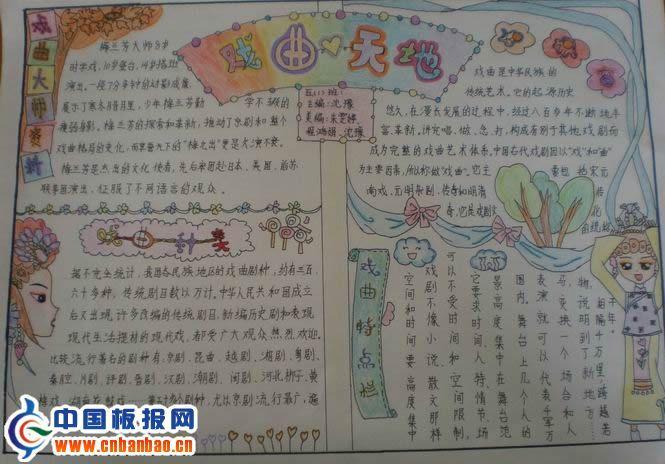 戏曲天地
五(1)班:
主编:沈璟
戏曲大师荟萃
梅兰芳大师8岁
时学戏,10岁登台,14岁搭班
演出。一段7分钟的动影成靠,
展示了寒冬腊月里,少年梅兰芳勤
学不辍的
瘦弱身影。梅兰芳的探索和革新,推动了京剧和整个
戏曲格局的变化,而享誉九下的"梅之出"更是大演不衰。
梅兰芳是杰出的文化使者,先后率团赴日本、美国、前苏
联等国演出,征服了不同语言的观众。
戏曲是中华民族的
传统艺术,它的起源历史
悠久,在漫长发展的过程中,经过八百多年不断地丰
富、革新,讲究唱、做、念、打,构成有别于其他戏剧而
成为完整的戏曲艺术体系。中国古代戏剧因以"戏"和"曲"
为主要因素,所以称做"戏曲"。它主
要包括宋元
南戏、元明杂剧、传奇和明清
传
奇,
戏曲种类
据不完全统计,我国各民族地区的戏曲剧种,约有三百
六十多种,传统剧目数以万计。中华人民共和国成立
后又出现许多改编的传统剧目,新编历史剧和表现
现代生活题材的现代戏,都受广大观众热烈欢迎。
比较流行著名的剧种有:京剧、昆曲、越剧、湘剧、粤剧、
秦腔、川剧、评剧、晋剧、汉剧、潮剧、闽剧、河北梆子、黄
梅戏、湖南花鼓戏……等五十多个剧种,尤以京剧流行最广,遍
戏曲特点栏
戏剧不像小说、散文那样
可以不受时间和空间限制,
它要求时间、人物、情节、场
景高度集中在舞台范
围内。舞台上几个人的
表演就可以代表千军万
马,变换一个场台和人
物,说明到了新地方……
相隔千万里,跨越若
干年。
空间和时间要高度集中
中国板报网
www.cnbanbao.cn